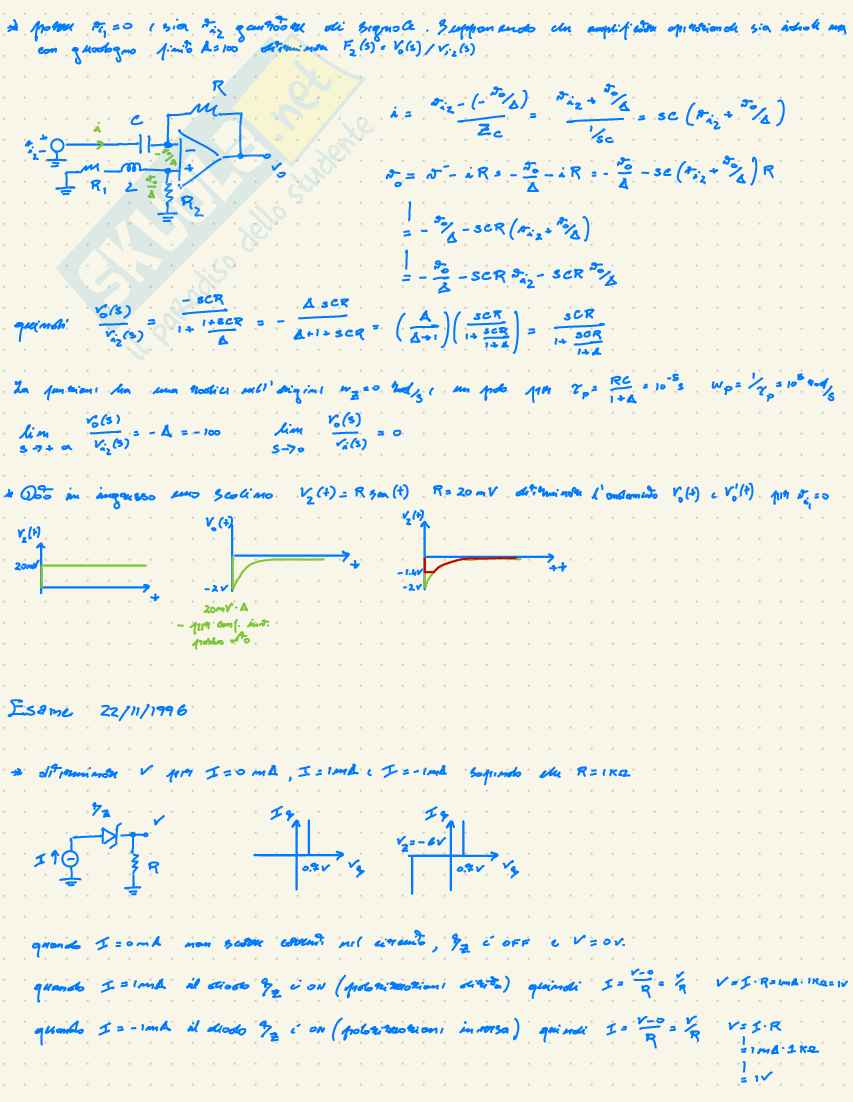 → porre vi1 = 0 e sia vi2 generatore di segnale. Supponendo che amplificatore operazionale sia ideale ma
con guadagno finito A=100 determinare F2(s) = Vo(s)/Vi2(s)
R
C
i
vi2
+
-
-vo/A
vo/A
vo
R1
L
R2
i = vi2-(-vo/A) / Zc = vi2 + vo/A / 1/sC = sC (vi2 + vo/A)
vo = v⁻ - iR = -vo/A - iR = -vo/A - sC(vi2 + vo/A)R
= -vo/A - sCR(vi2 + vo/A)
= -vo/A - sCR vi2 - sCR vo/A
quindi vo(s)/vi2(s) = -sCR / 1 + 1+sCR/A = - A sCR / A+1+sCR = (A/A+1)(sCR / 1 + sCR/1+A) = sCR / 1 + sCR/1+A
La funzione ha una radice nell'origine wz=0 rad/s e un polo per τp = RC/1+A = 10⁻⁵s wp = 1/τp = 10⁵ rad/s
lim s→+∞ vo(s)/vi2(s) = -A = -100 lim s→0 vo(s)/vi(s) = 0
* Dato in ingresso uno scalino V2(t) = R sca(t) R = 20mV determinare l'andamento Vo(t) e Vo'(t) per vi1=0
V2(t)
20mV
t
Vo(t)
-2V
t
20mV·A
- per conf. inv.
V2(t)
-1.4V
-2V
t
SKUOLA.net
il paradiso dello studente
Esame 22/11/1996
→ determinare V per I=0 mA, I=1mA e I=-1mA sapendo che R=1KΩ
I
V
R
0.7V
Vz=-6V
0.7V
quando I=0mA non scorre corrente nel circuito, è OFF e V=0V.
quando I=1mA il diodo è ON (polarizzazione diretta) quindi I = V-0/R = V/R V=I·R=1mA·1KΩ=1V
quando I=-1mA il diodo è ON (polarizzazione inversa) quindi I = V-0/R = V/R V=I·R
=1mA·1KΩ
=1V